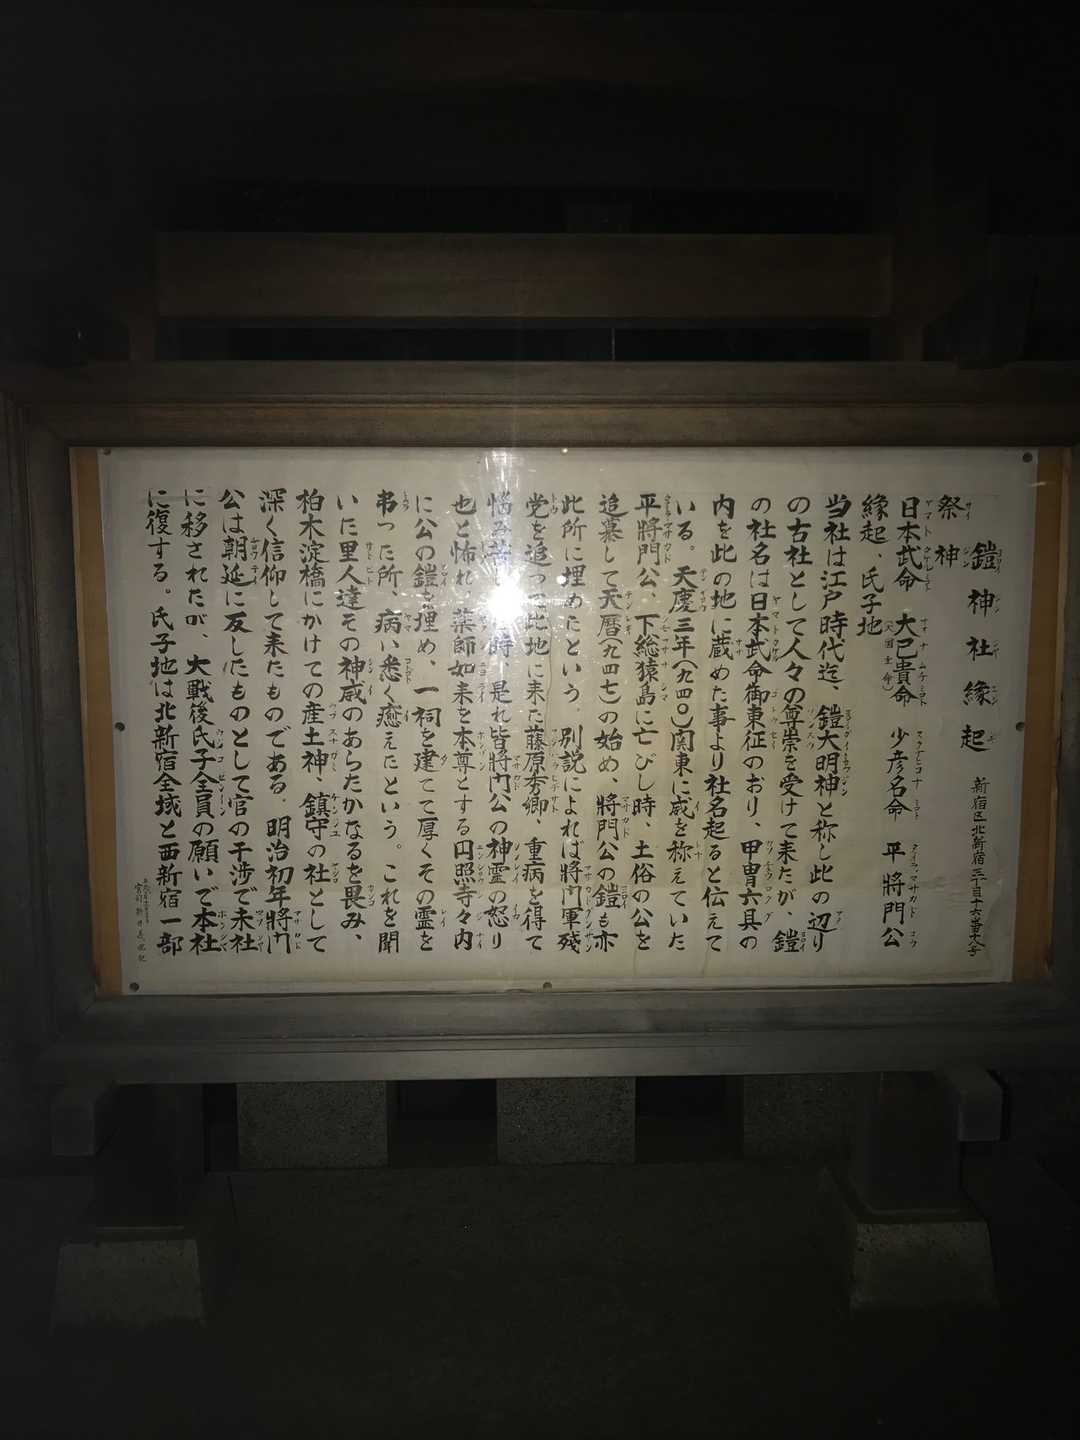 鎧神社縁起 新宿区北新宿三丁目十六番十八号
祭神
日本武命 大己貴命(大国主命) 少彦名命 平將門公
縁起、氏子地
当社は江戸時代迄、鎧大明神と称し此の辺り
の古社として人々の尊崇を受けて来たが、鎧
の社名は日本武命御東征のおり、甲冑六具の
内を此の地に蔵めた事より社名起ると伝えて
いる。天慶三年(九四〇)関東に威を称えていた
平將門公、下総猿島に亡びし時、土俗の公を
追慕して天暦(九四七)の始め、將門公の鎧も亦
此所に埋めたという。別説によれば將門軍残
党を追って此地に来た藤原秀郷、重病を得て
悩み苦し 時、是れ皆將門公の神霊の怒り
也と怖れ、薬師如来を本尊とする円照寺々内
に公の鎧を埋め、一祠を建てて厚くその霊を
弔った所、病い悉く癒えたという。これを聞
いた里人達その神威のあらたかなるを畏み、
柏木淀橋にかけての産土神、鎮守の社として
深く信仰して来たものである。明治初年將門
公は朝廷に反したものとして官の干渉で末社
に移されたが、大戦後氏子全員の願いで本社
に復する。氏子地は北新宿全域と西新宿一部
宮司